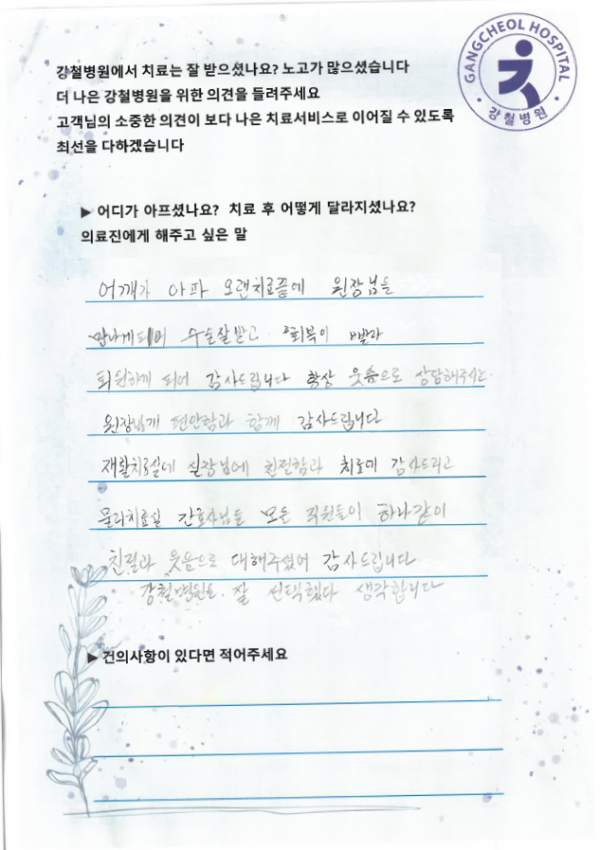 강철병원에서 치료는 잘 받으셨나요? 노고가 많으셨습니다
더 나은 강철병원을 위한 의견을 들려주세요
고객님의 소중한 의견이 보다 나은 치료서비스로 이어질 수 있도록
최선을 다하겠습니다
GANGCHEOL HOSPITAL
강철병원
▶ 어디가 아프셨나요? 치료 후 어떻게 달라지셨나요?
의료진에게 해주고 싶은 말
어깨가 아파 오랜치료끝에 원장님을
만나게되어 수술잘받고 회복이 빨라
퇴원하게 되어 감사드립니다 항상 웃음으로 상담해주시는
원장님께 편안함과 함께 감사드립니다
재활치료실에 실장님에 친절함과 치료에 감사드리고
물리치료실 간호사님들 모든 직원들이 하나같이
친절과 웃음으로 대해주셨어 감사드립니다
강철병원을 잘 선택했다 생각합니다
▶ 건의사항이 있다면 적어주세요